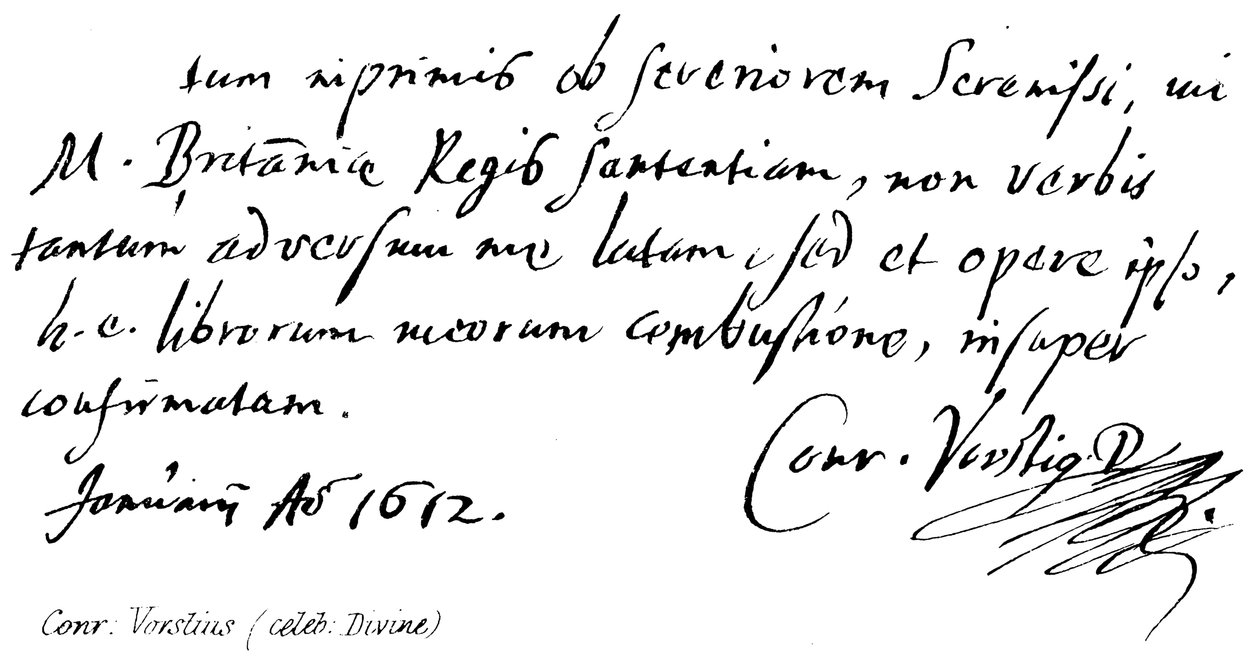 tum inprimis ob severiorem Serenissi, mi
M. Britāniæ Regis sententiam, non verbis
tantùm adversum me latam, sed et opere ipso,
h. e. librorum meorum combustióne, insuper
confirmatam.
Conr. Vorstiq D.
Januarij Aō 1612.
Conr: Vorstius (celeb: Divine)